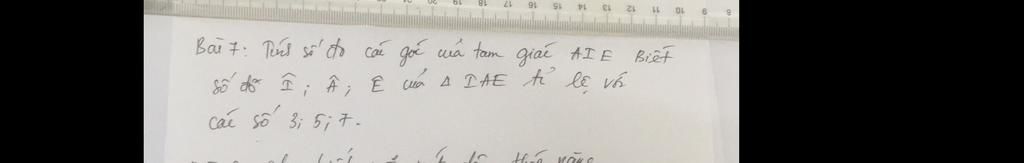 8 9 10 11 12 13 14 15 16 17 18 19 20
Bài 7: Tính số đo các góc của tam giác AIE Biết
số đo Î; Â; Ê của Δ IAE tỉ lệ với
các số 3; 5; 7.